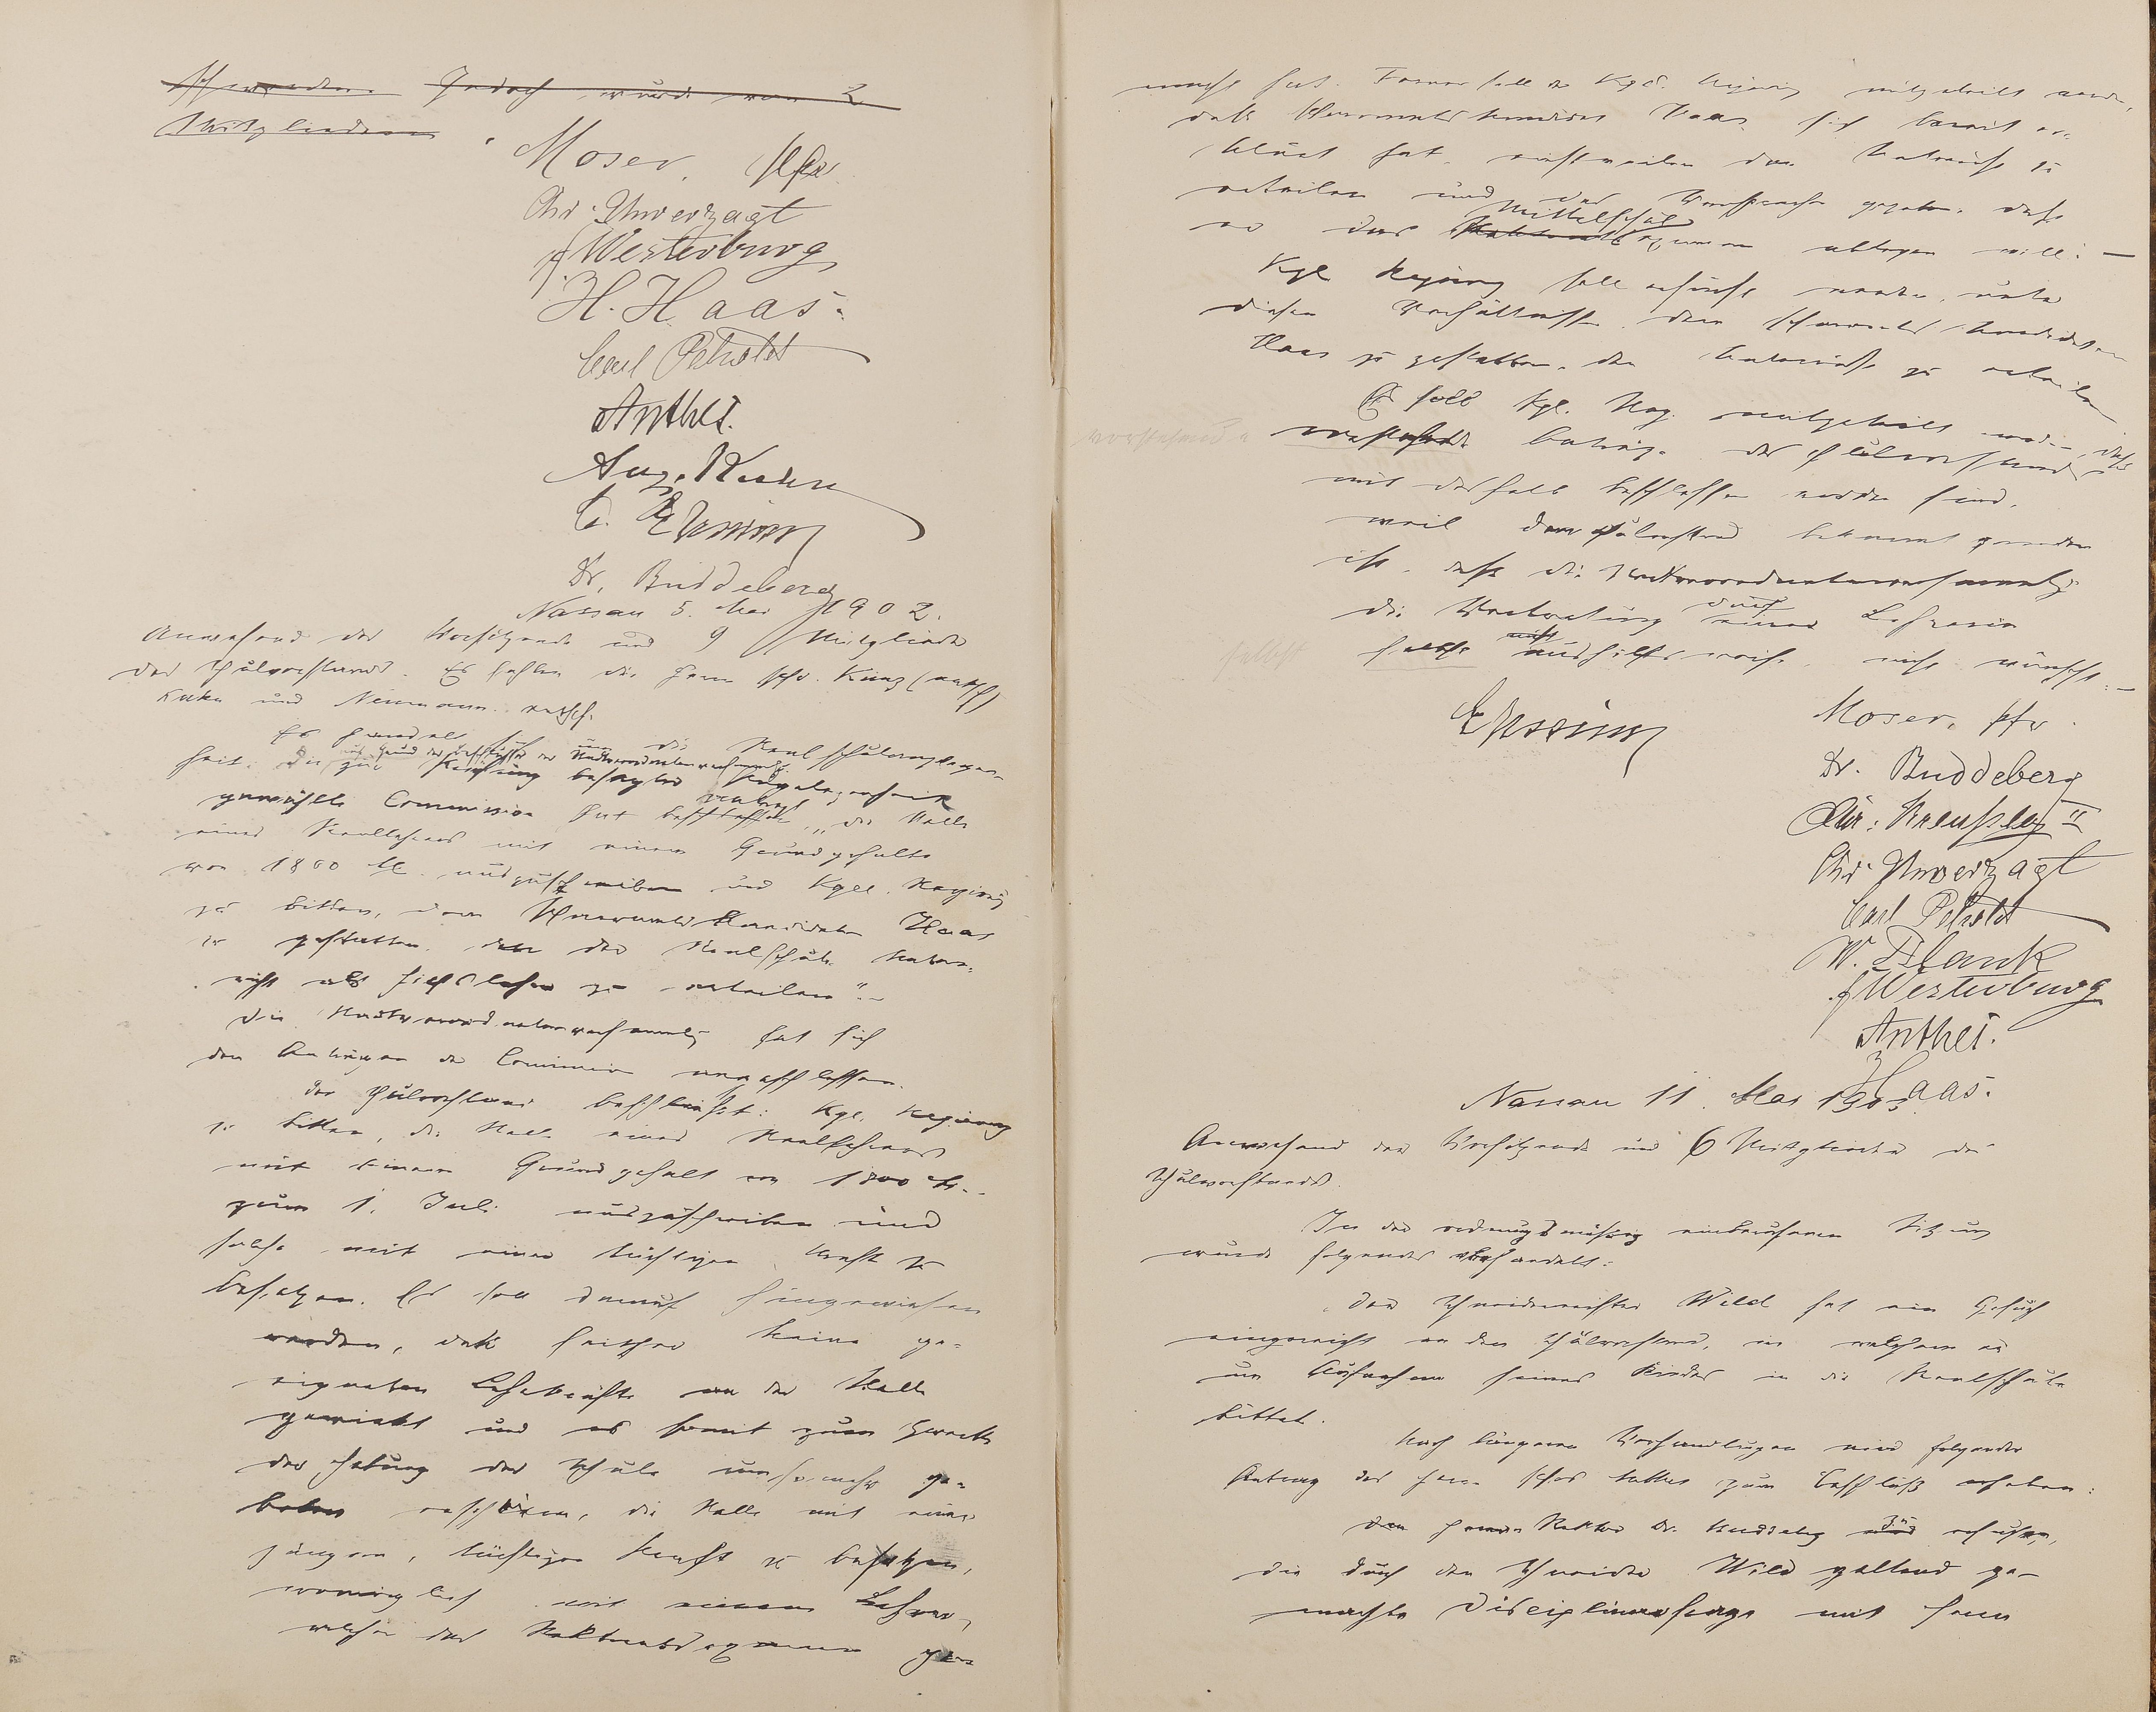 werden. Jedoch wurde von 2
Mitgliedern
Moser, Pfr
Chr. Unverzagt
Westerburg
H. Haas.
Carl Pethold
Anthes.
Aug. Kuhn
Dr. Buddeberg
Nassau 5. Mai 1902.
Anwesend der Vorsitzende und 9 Mitglieder
des Schulvorstands. Es fehlen die Herren Kunz (entsch)
und Neumann entsch.
Es handelt sich um die Realschulangelegen-
heit. Die auf Grund der Beschlüsse der Stadtverordnetenversammlung
zur besagter Angelegenheit
gewählte Commission hat beantragt, „die Stelle
eines Reallehrers mit einem Grundgehalte
von 1800 M. auszuschreiben und Kgl. Regierung
zu bitten, dem Schulamtskandidaten Haas
zu gestatten, an der Realschule Unter-
richt als Hilfslehrer zu erteilen".-
Die Stadtverordnetenversammlung hat sich
den Anträgen der Commission angeschlossen.
Der Schulvorstand beschließt: Kgl. Regierung
zu bitten, die Stelle eines Reallehrers
mit einem Grundgehalt von 1800 M.
zum 1. Juli auszuschreiben und
solche mit einer tüchtigen Kraft zu
besetzen. Es soll darauf hingewiesen
werden, daß seither keine ge-
eigneten Lehrkräfte an der Stelle
gewirkt und es somit zum Zwecke
der Hebung der Schule umsomehr ge-
boten erscheine, die Stelle mit einer
jüngeren, tüchtigen Kraft zu besetzen,
womöglich mit einem Lehrer,
welcher das Rektoratsexamen ge-
macht hat. Ferner soll der Kgl. Regierung mitgeteilt werden,
daß Schulamtskandidat Haas sich bereit er-
klärt hat, einstweilen den Unterricht zu
erteilen und das Versprechen gegeben, daß
er das Mittelschulexamen ablegen will.-
Kgl. Regierung soll ersucht werden, unter
diesen Verhältnissen dem Schulamtskandidaten
Haas zu gestatten, den Unterricht zu erteilen
Es soll Kgl. Reg. mitgeteilt werden, daß
vorstehende Anträge des Schulvorstands
nur deshalb beschlossen worden sind,
weil dem Schulvorstand bekannt geworden
ist, daß die Stadtverordnetenversammlung
die Vertretung durch einen Lehrer
selbst aushilfsweise nicht wünscht.-
Moser, Pfr.
Dr. Buddeberg
Chr. Kreußler II
Chr. Unverzagt
Carl Pethold
W. Blank
Westerburg
Anthes.
Haas.
Nassau 11. Mai 1902.
Anwesend der Vorsitzende und 6 Mitglieder des
Schulvorstands.
In der ordnungsmäßig einberufenen Sitzung
wurde folgendes verhandelt:
Der Schneidermeister Wild hat ein Gesuch
eingereicht an den Schulvorstand, in welchem er
um Aufnahme seines Kindes in die Realschule
bittet.
Nach längeren Verhandlungen wird folgender
Antrag des Herrn zum Beschluß erhoben:
den Herrn Rektor Dr. Buddeberg zu ersuchen,
die durch den Schneider Wild geltend ge-
machte Disciplinarfrage mit Herrn